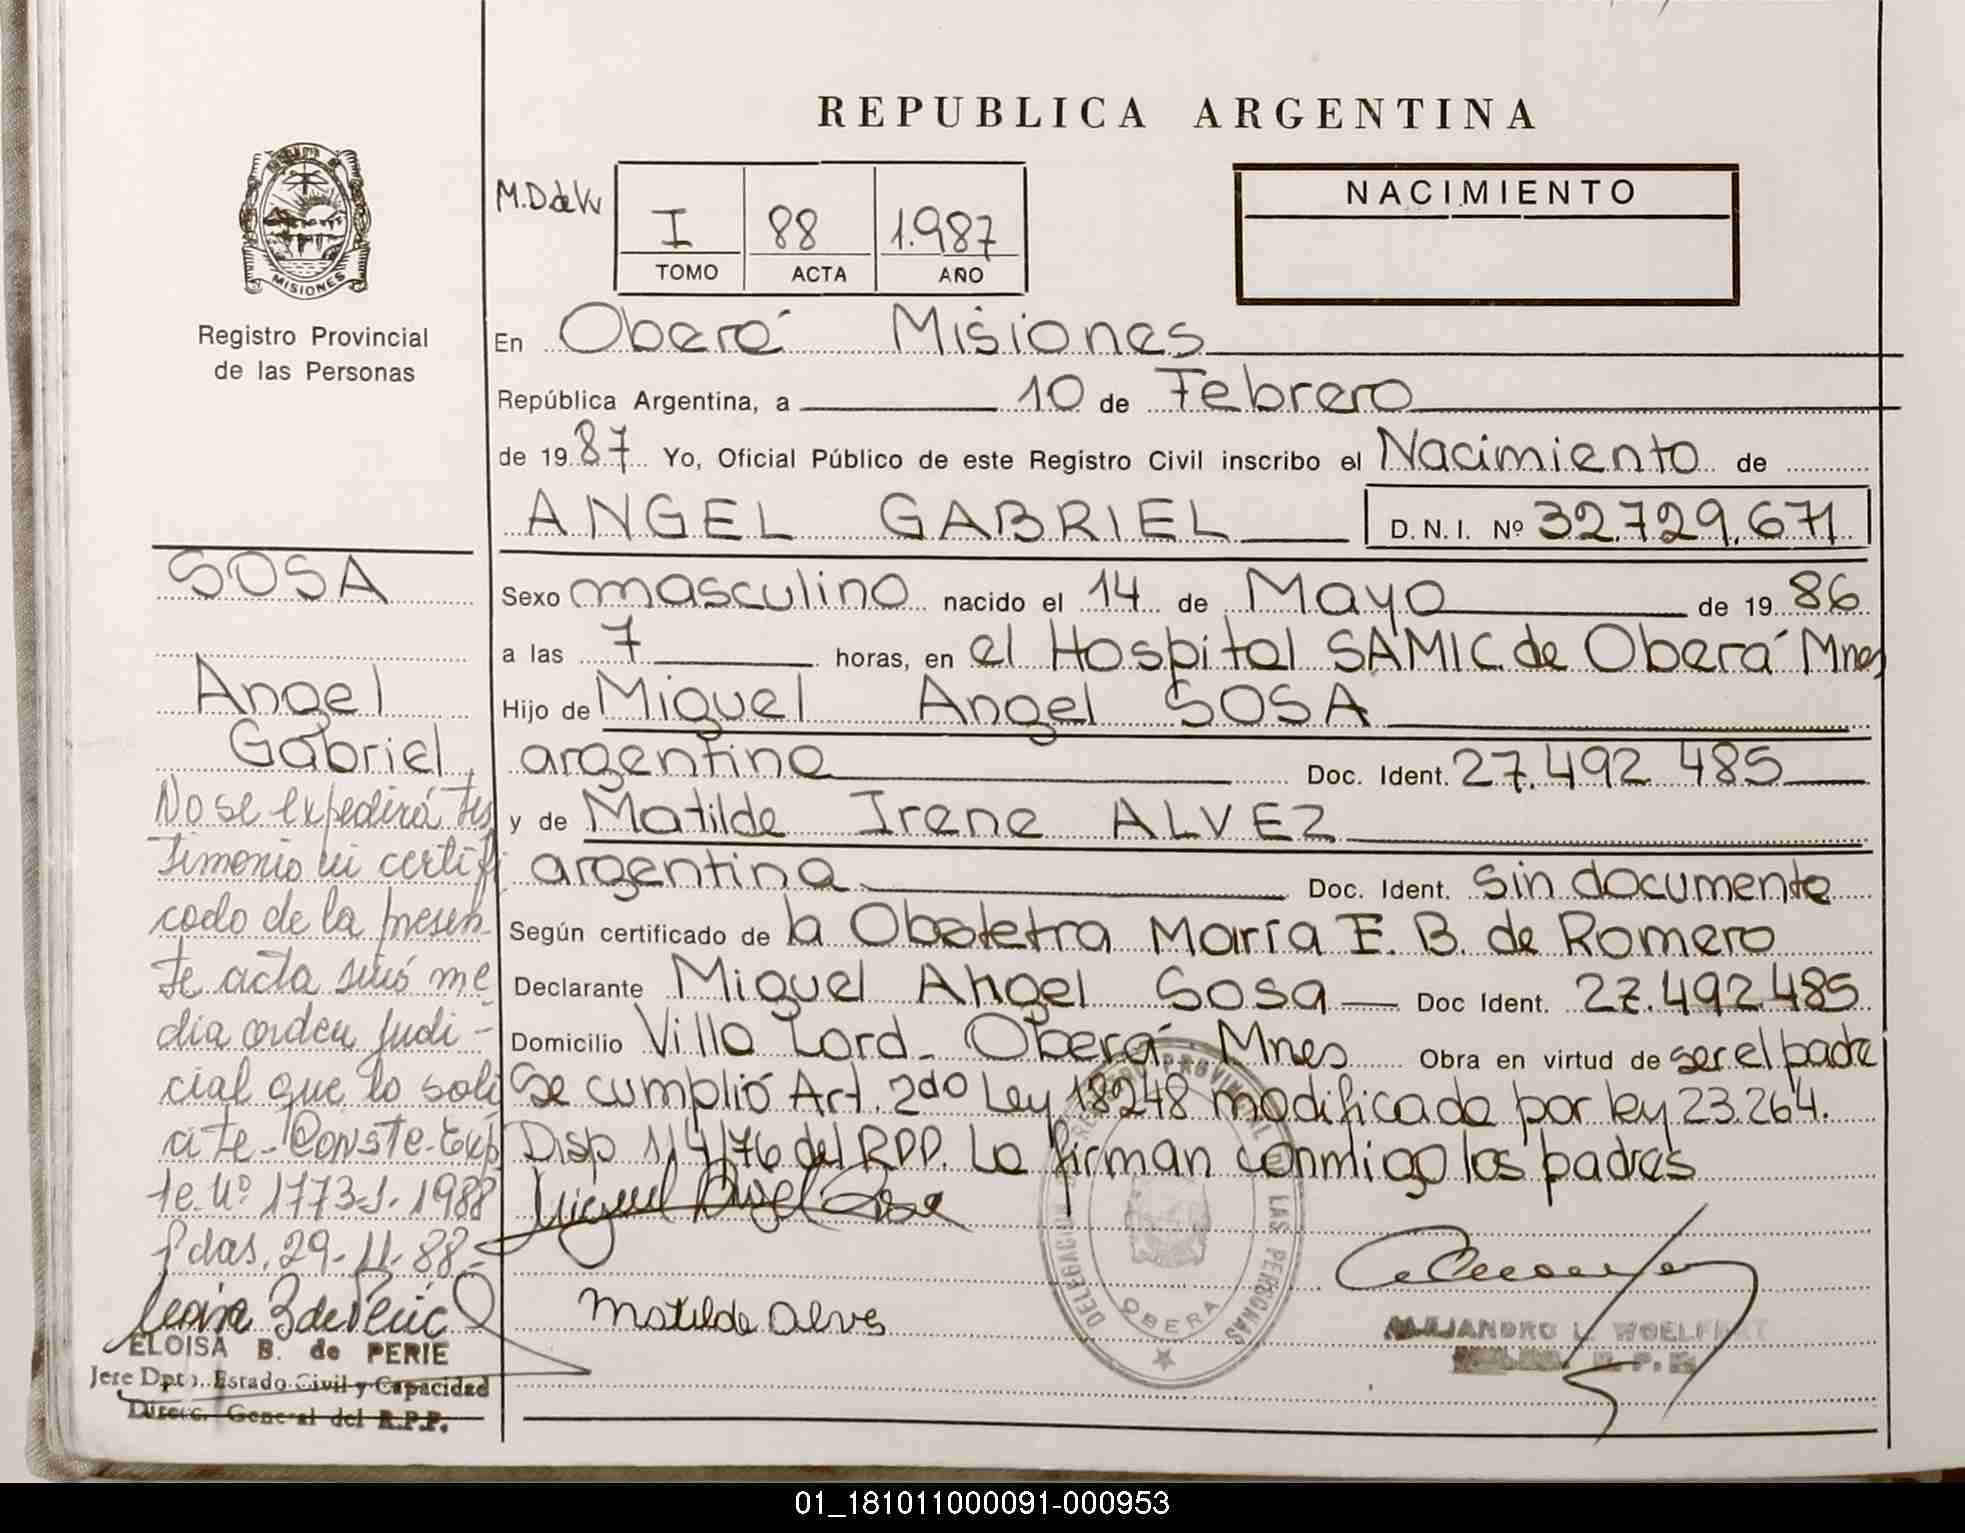 REPUBLICA ARGENTINA
MISIONES
Registro Provincial
de las Personas
M.D de
I 88 1.987
TOMO ACTA AÑO
NACIMIENTO
En Oberá Misiones
República Argentina, a 10 de Febrero
de 19 87 Yo, Oficial Público de este Registro Civil inscribo el Nacimiento de
ANGEL GABRIEL D.N.I. Nº 32.729.671
Sexo masculino nacido el 14 de Mayo de 19 86
a las 7 horas, en el Hospital SAMIC de Oberá Mnes
Hijo de Miguel Angel SOSA
argentino Doc. Ident. 27.492 485
y de Matilde Irene ALVEZ
argentina Doc. Ident. sin documento
Según certificado de la Obstetra María E. B. de Romero
Declarante Miguel Angel Sosa Doc Ident. 27.492.485
Domicilio Villa Lord - Oberá Mnes Obra en virtud de ser el padre
Se cumplió Art. 2do Ley 18248 modificada por ley 23.264.
Disp 114/76 del RPP. Lo firman conmigo los padres
Miguel Angel Sosa
Matilde Alves
DELEGACION REGISTRO PROVINCIAL DE LAS PERSONAS
OBERA
ALEJANDRO L. WOELFERT
SOSA
Angel
Gabriel
No se expedirá tes
timonio ni certifi
cado de la presen-
te acta sinó me
dia orden judi-
cial que lo soli
cite - Conste - Exp
te. Nº 1773-S-1988
Pdas. 29-11-88-
ELOISA B. de PERIE
Jefe Dpto. Estado Civil y Capacidad
Direcc. General del R.P.P.
01_181011000091-000953